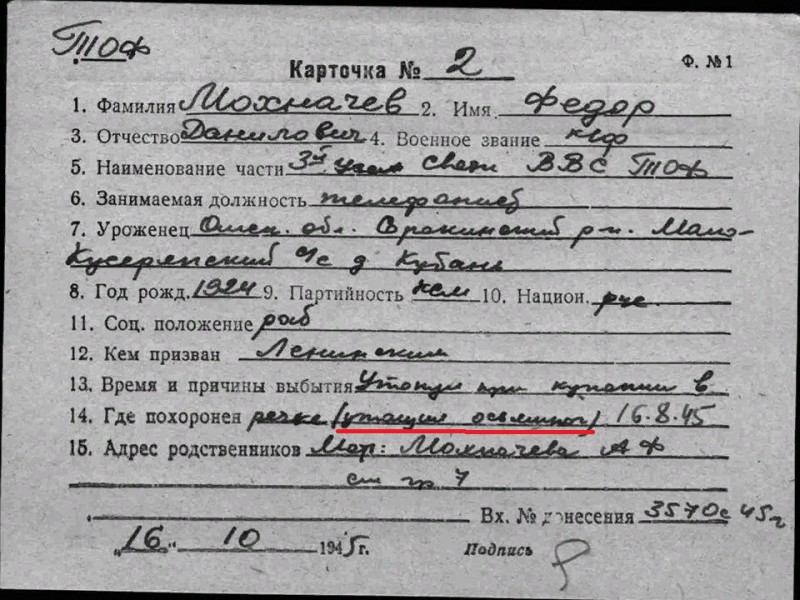 ТОФ
Карточка № 2 Ф. №1
1. Фамилия Мохначев 2. Имя. Федор
3. Отчество Данилович 4. Военное звание к/ф
5. Наименование части 3й Связи ВВС ТОФ
6. Занимаемая должность телефонист
7. Уроженец Омск. обл. р-н. Мало-
Кусеряпский с/с д Кубань
8. Год рожд. 1924 9. Партийность ксм 10. Национ. рус.
11. Соц. положение раб
12. Кем призван Ленинским
13. Время и причины выбытия Утонул при купании в
14. Где похоронен речке (утащил осьминог) 16.8.45
15. Адрес родственников Мат: Мохначева А Ф
ст гр 7
Вх. № донесения 3570с 45г
„16“ 10 1945г. Подпись